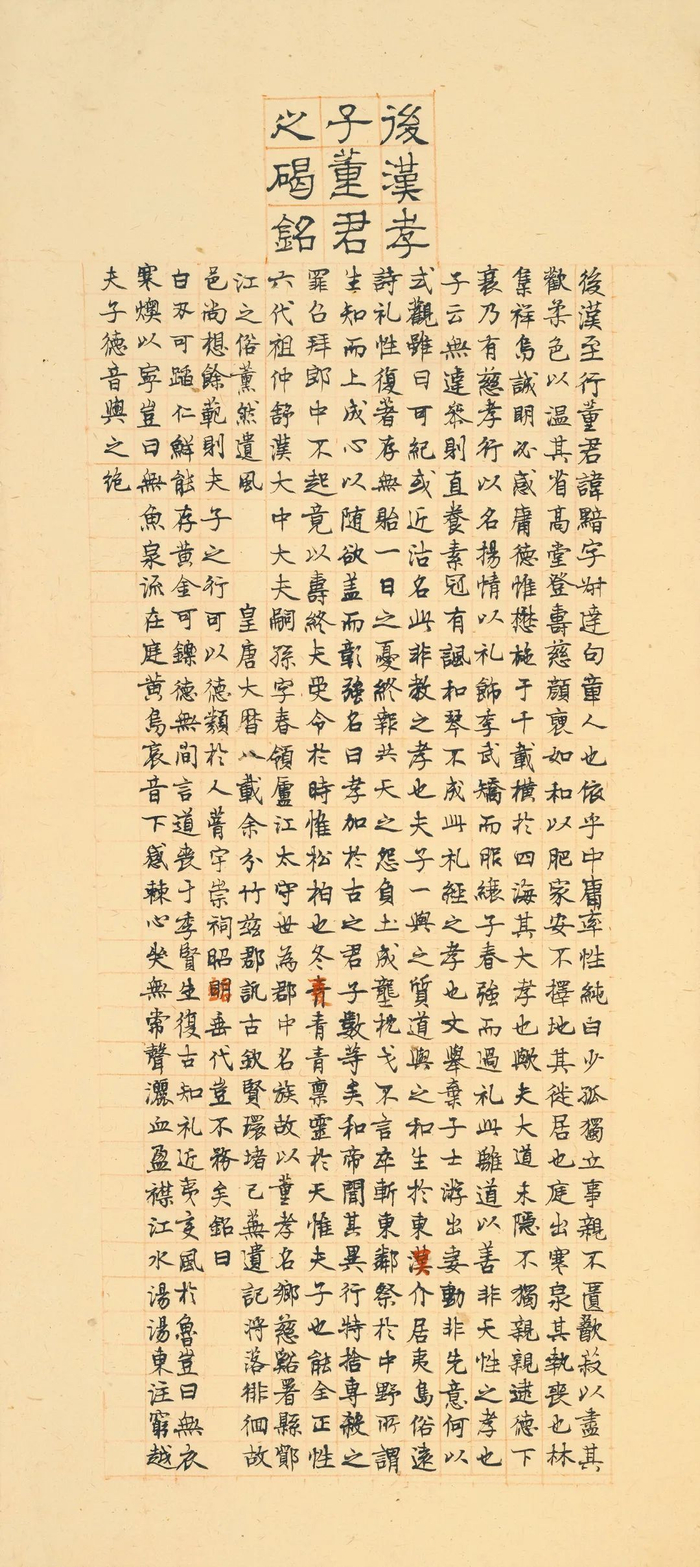 後漢孝
子董君
之碣銘
後漢至行董君諱黯字叔達句章人也依乎中庸率性純白少孤獨立事親不匱歠菽以盡其
歡柔色以温其省髙堂登壽慈顔裒如和以肥家安不擇地其徙居也庭出寒泉其執喪也林
集祥烏誠明必感庸德惟懋施于千載橫於四海其大孝也歟夫大道未隱不獨親親逮德下
衰乃有慈孝行以名揚情以礼飾季武矯而服縗子春強而過礼此離道以善非天性之孝也
子云無違祭則直養素冠有諷和琴不成此礼經之孝也文舉棄子士游出妻動非先意何以
式觀雖曰可紀或近沽名此非教之孝也夫子一與之質道與之和生於東漢介居夷島俗遠
詩礼性復著存無貽一日之憂終報共天之怨負土成壟枕戈不言卒斬東鄰祭於中野所謂
生知而上成心以随欲盖而彰強名曰孝加於古之君子數等矣和帝聞其異行特捨專殺之
罪召拜郎中不起竟以壽終夫受令於時惟松柏也冬青青青禀靈於天惟夫子也能全正性
六代祖仲舒漢大中大夫嗣孫字春領廬江太守世為郡中名族故以董孝名鄉慈谿署縣鄮
江之俗薰然遺風 皇唐大曆八載余分竹兹郡訊古欽賢環堵已蕪遺記將落徘徊故
邑尚想餘範則夫子之行可以德類於人膋宇崇祠昭明垂代豈不務矣銘曰
白刃可蹈仁鮮能存黄金可鑠德無間言道喪于季賢生復古知礼近夷变風於魯豈曰無衣
寒燠以寧豈曰無魚泉流在庭黄鳥哀音下感棘心哭無常聲灑血盈襟江水湯湯東注窮越
夫子德音與之绝